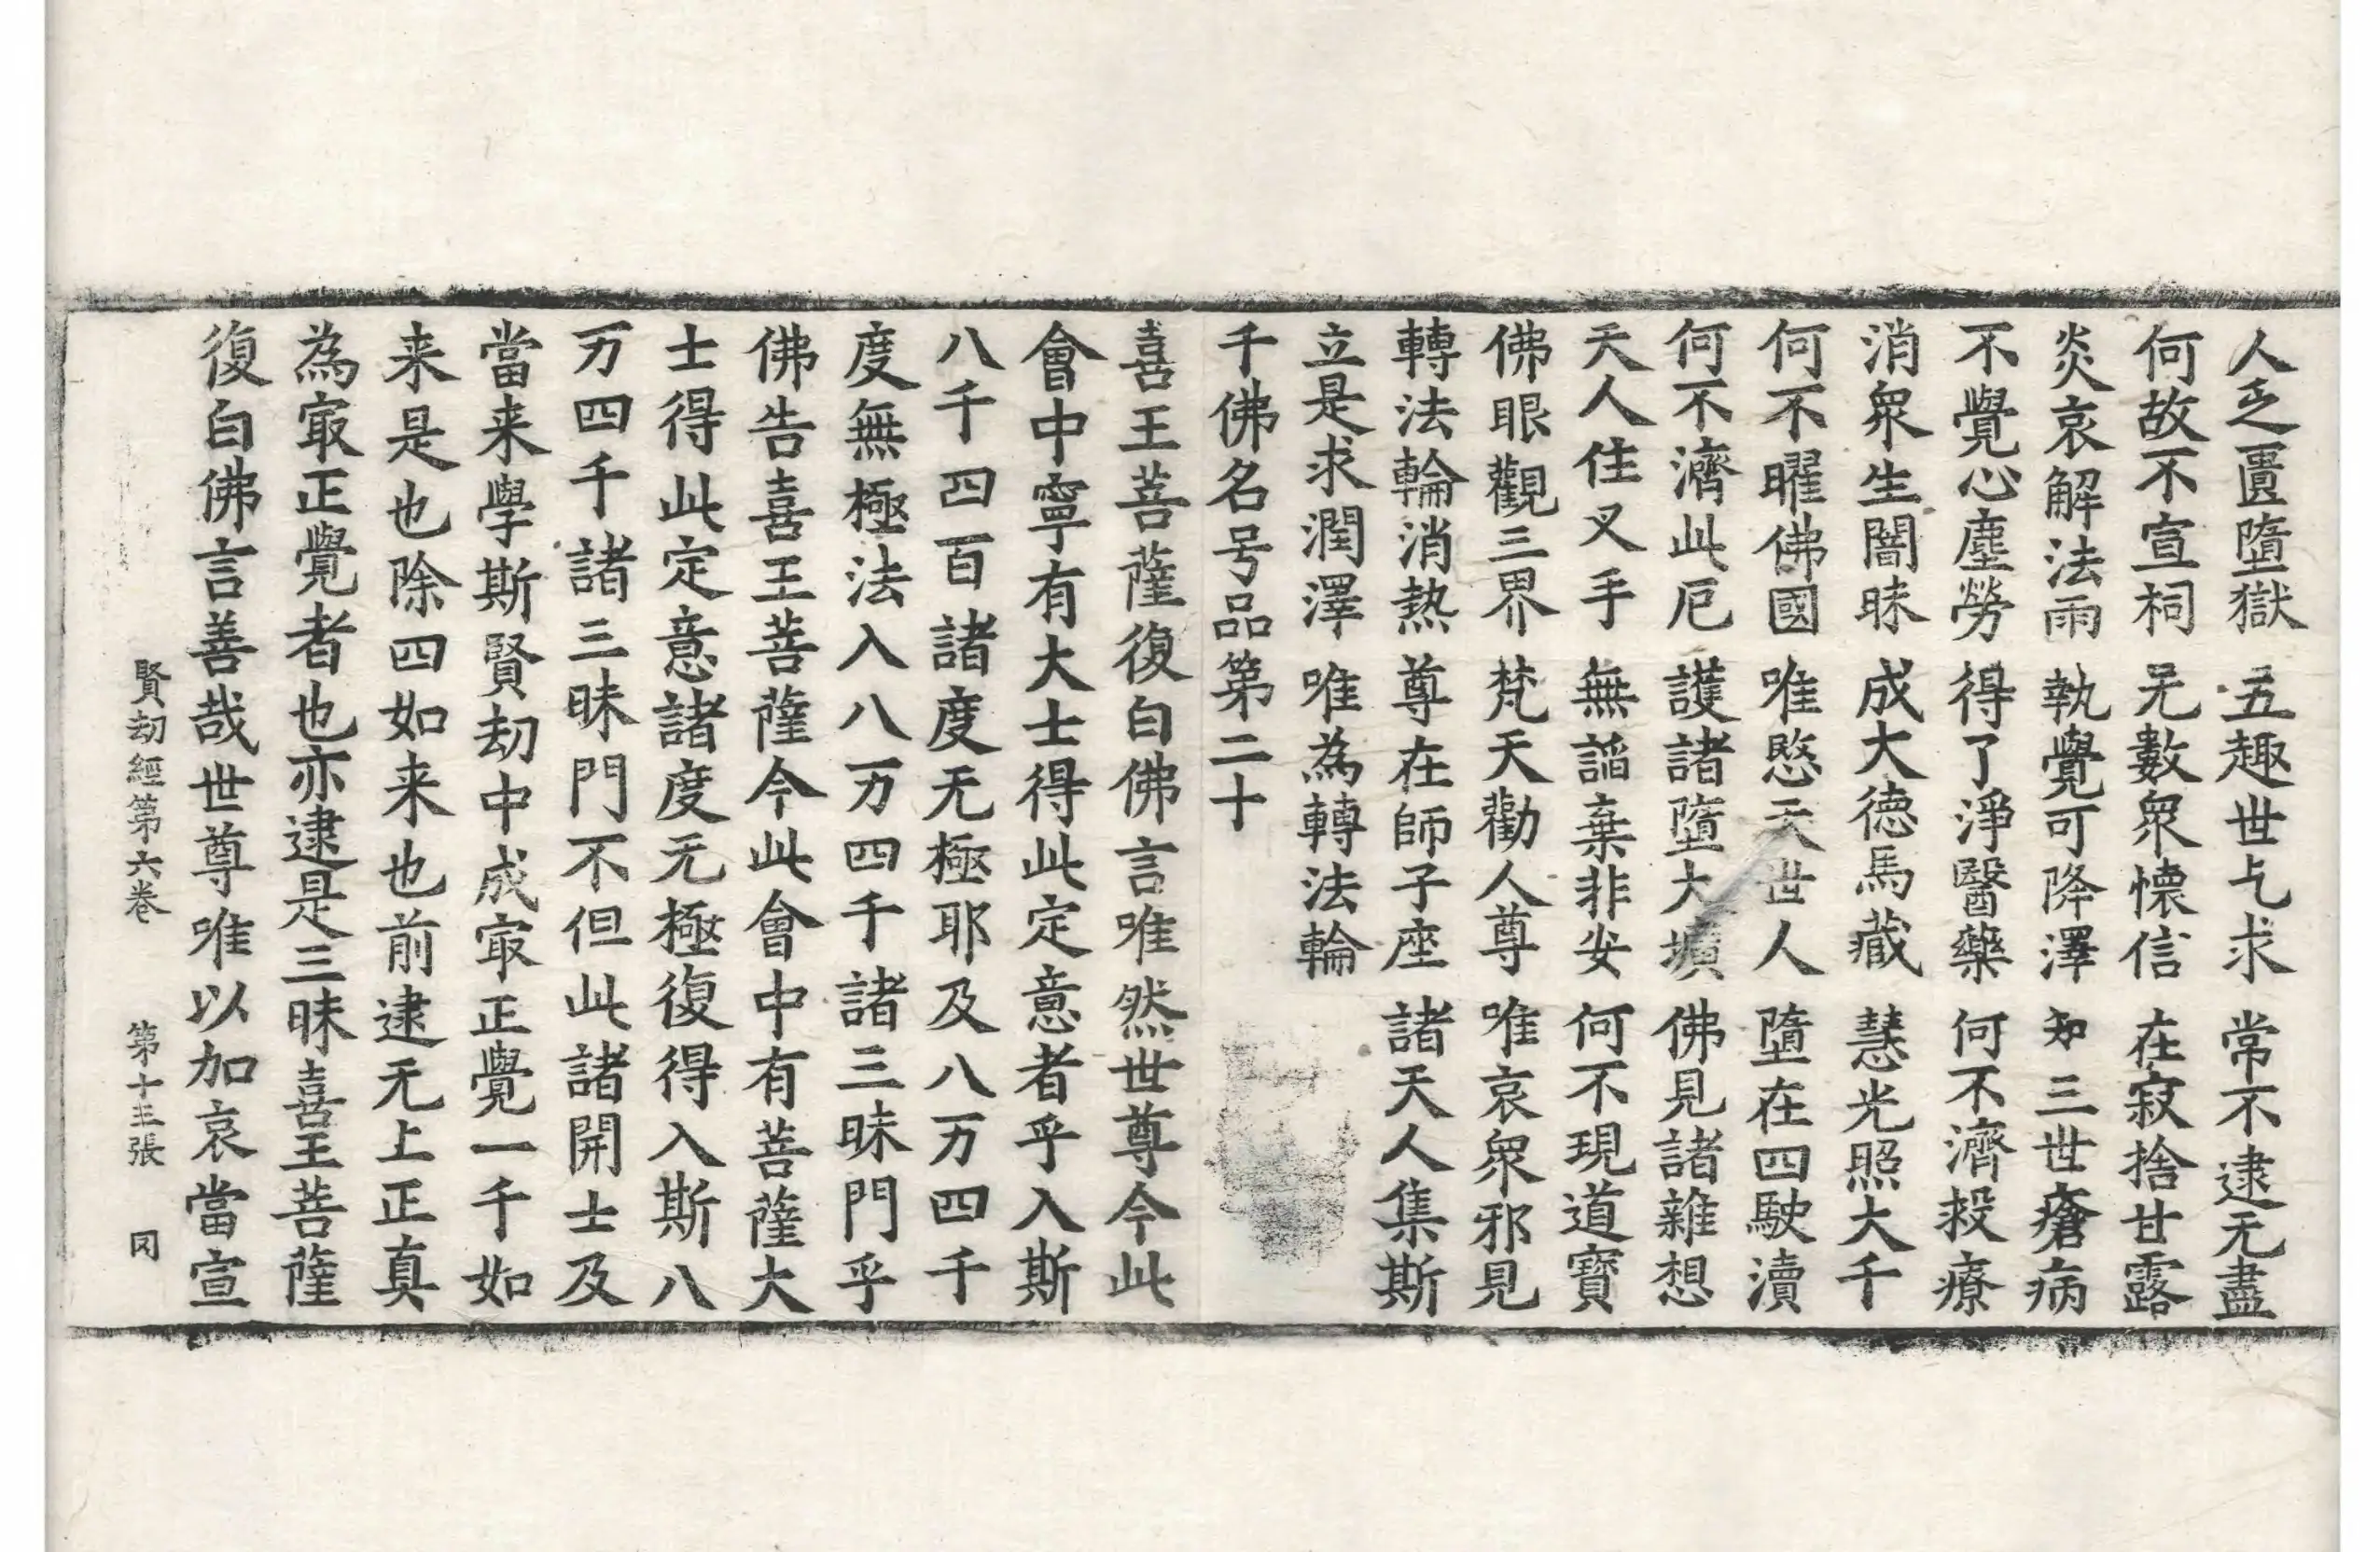 人乏匱墮獄 五趣世乞求 常不逮无盡
何故不宣祠 无數衆懷信 在寂捨甘露
炎哀解法雨 執覺可降澤 知三世瘡病
不覺心塵勞 得了淨醫藥 何不濟救療
消衆生闇昧 成大德馬藏 慧光照大千
何不曜佛國 唯愍天世人 墮在四駛瀆
何不濟此厄 護諸墮大壙 佛見諸雜想
天人住叉手 無諂棄非安 何不現道寶
佛眼觀三界 梵天勸人尊 唯哀衆邪見
轉法輪消熱 尊在師子座 諸天人集斯
立是求潤澤 唯為轉法輪
千佛名号品第二十
喜王菩薩復白佛言唯然世尊今此
會中寧有大士得此定意者乎入斯
八千四百諸度无極耶及八万四千
度無極法入八万四千諸三昧門乎
佛告喜王菩薩今此會中有菩薩大
士得此定意諸度无極復得入斯八
万四千諸三昧門不但此諸開士及
當来學斯賢劫中成㝡正覺一千如
来是也除四如来也前逮无上正真
為㝡正覺者也亦逮是三昧喜王菩薩
復白佛言善哉世尊唯以加哀當宣
賢劫經第六卷 第十三張 冈